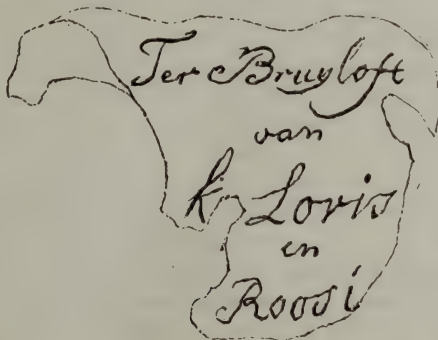 Ter Bruyloft
van
k Loris
en
Roosi